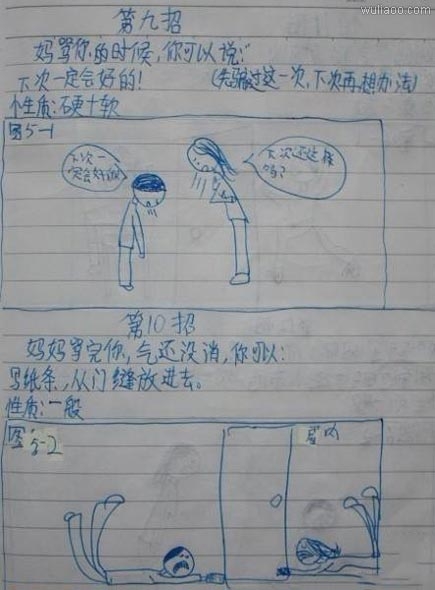 wuliaoo.com
第九招
妈骂你的时候，你可以说：
下次一定会好的！（先骗过这一次，下次再想办法）
个性质：硬十软
图5-1
下次一
定会好的
下次还这样
吗？
第10招
妈妈骂完你，气还没消，你可以：
写纸条，从门缝放进去。
性质：一般
图5-2